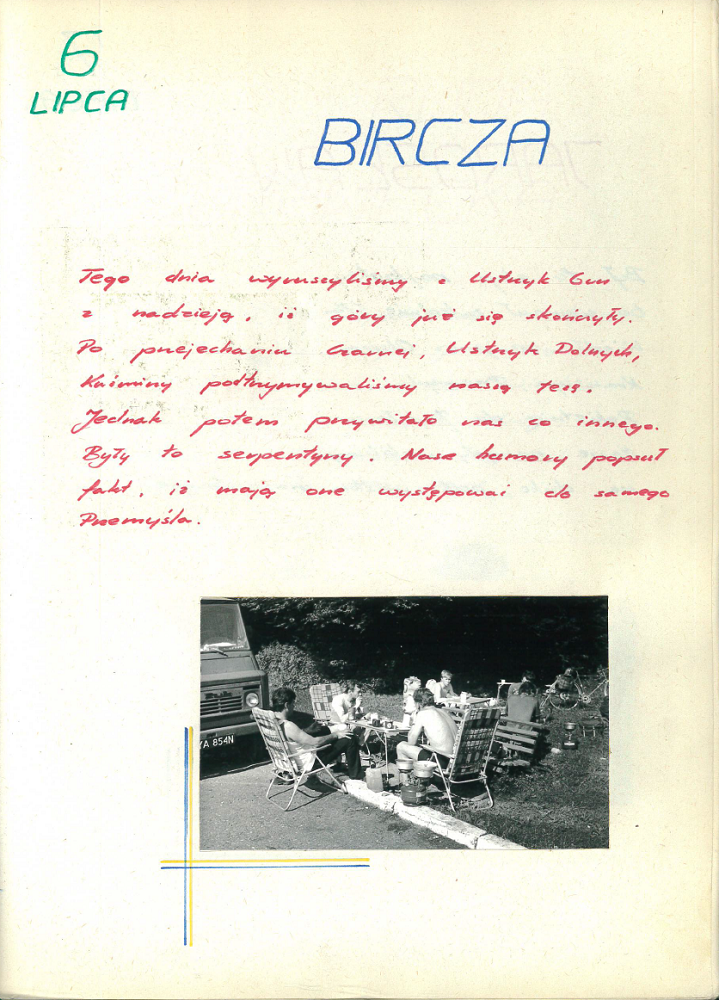 6
LIPCA
BIRCZA
Tego dnia wyruszyliśmy z Ustrzyk Grn
z nadzieją, iż góry już się skończyły.
Po przejechaniu Czarnej, Ustrzyk Dolnych,
Kuźminy podtrzymywaliśmy naszą tezę.
Jednak potem przywitało nas co innego.
Były to serpentyny. Nasze humory popsuł
fakt, iż mają one występować do samego
Przemyśla.
YA 854N